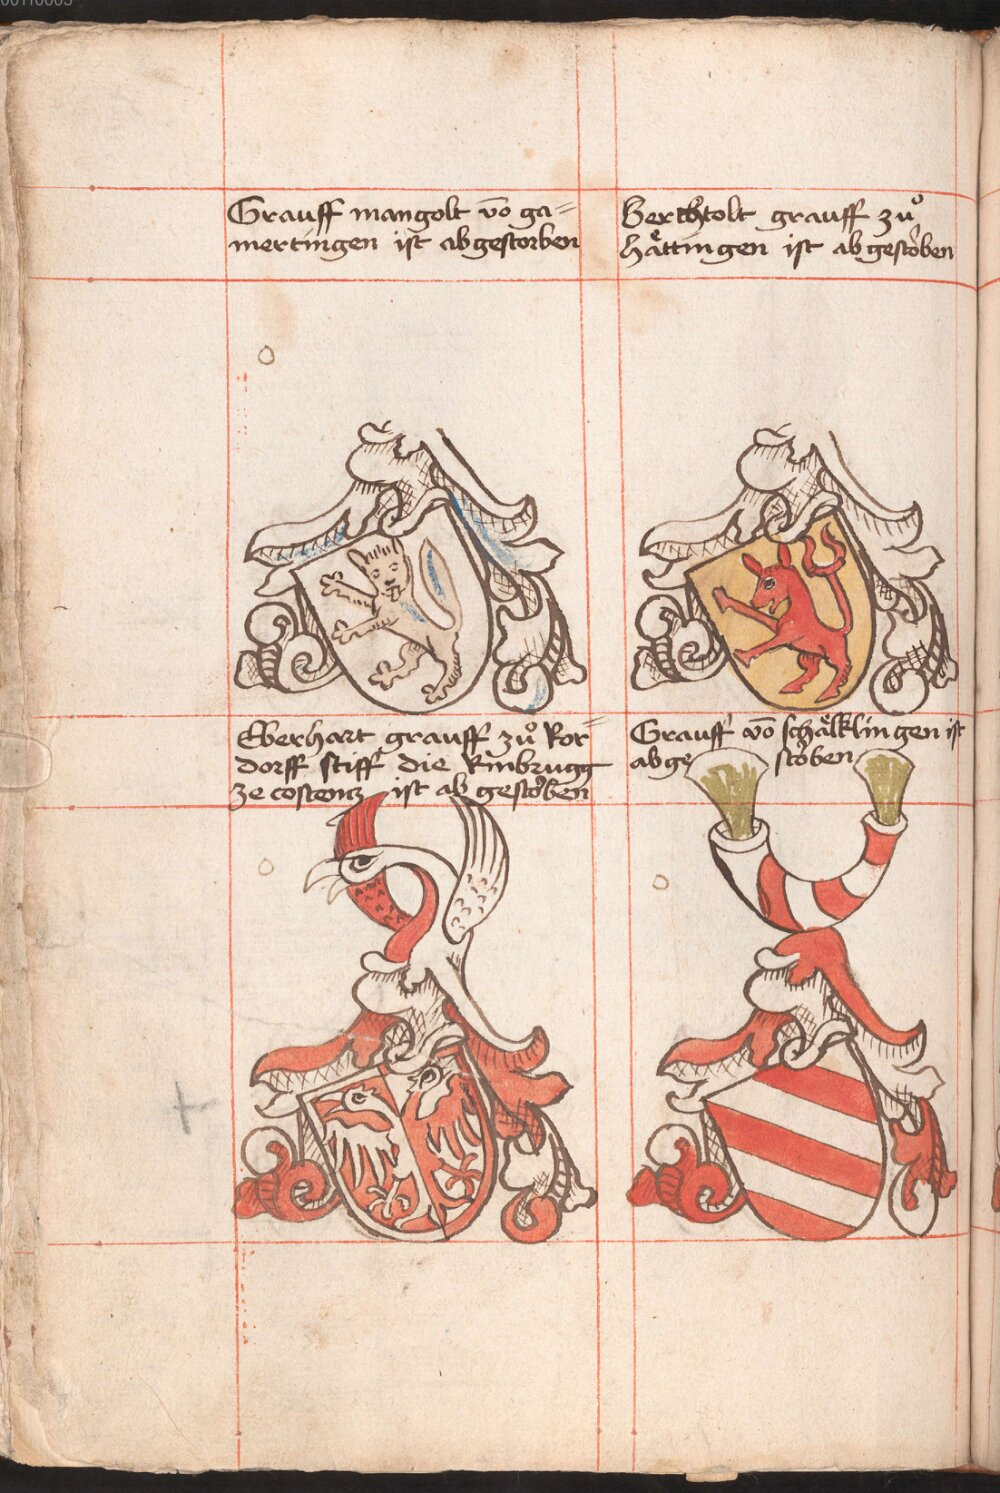 Grauff mangolt vō ga=
mertingen ist abgestorben
Berchtolt grauff zuͦ
hättingen ist abgestoͤben
Eberhart grauff zuͦ Ror=
dorff stifft die Rinbrugg
ze costencz ist ab gestoͤben
Grauff vō schälklingen ist
abgestoͤben